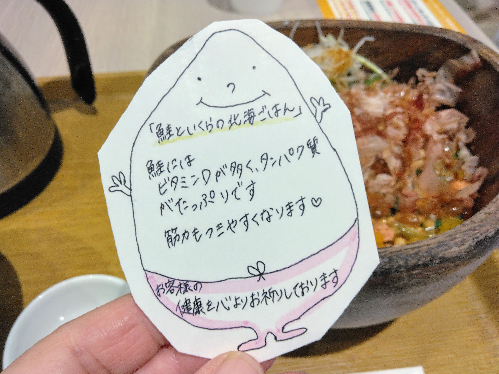 「鮭といくらの北海ごはん」
鮭には
ビタミンDが多く、タンパク質
がたっぷりです
筋力もつきやすくなります♡
お客様の
健康を心よりお祈りしております